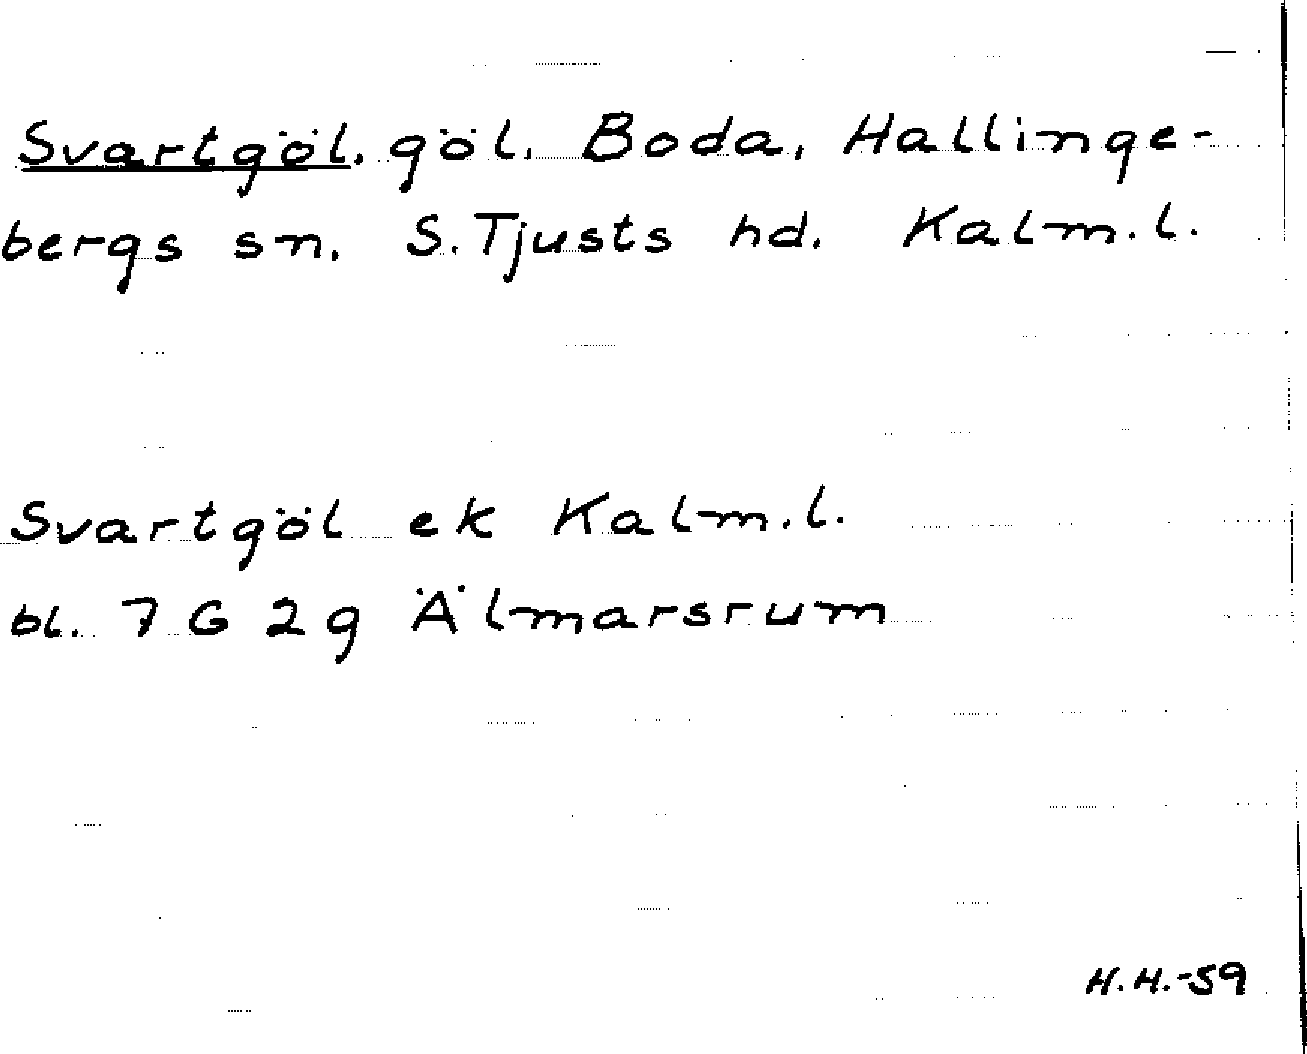 Svartgöl, göl, Boda, Hallinge-
bergs sn, S. Tjusts hd, Kalm.l.
Svartgöl ek Kalm.l.
bl. 7 G 2g Älmarsrum
H.H.-59